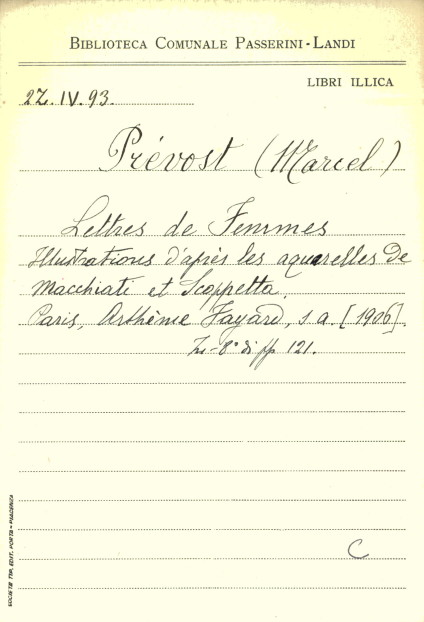 BIBLIOTECA COMUNALE PASSERINI-LANDI
LIBRI ILLICA
2Z.IV.93.
Prévost (Marcel)
Lettres de Femmes
Illustrations d'après les aquarelles de
Macchiati et Scoppetta.
Paris, Arthème Fayard, s a. [1906].
In-8° di pp 121.
C
SOCIETÀ TIP. EDIT. PORTA - PIACENZA